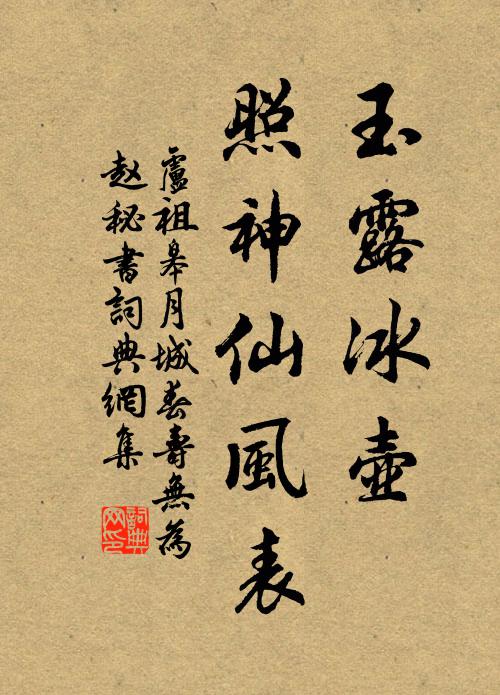 玉露冰壺
照神仙風表
盧祖皋月城春壽無為
赵秘書詞典網集
詞典
网印